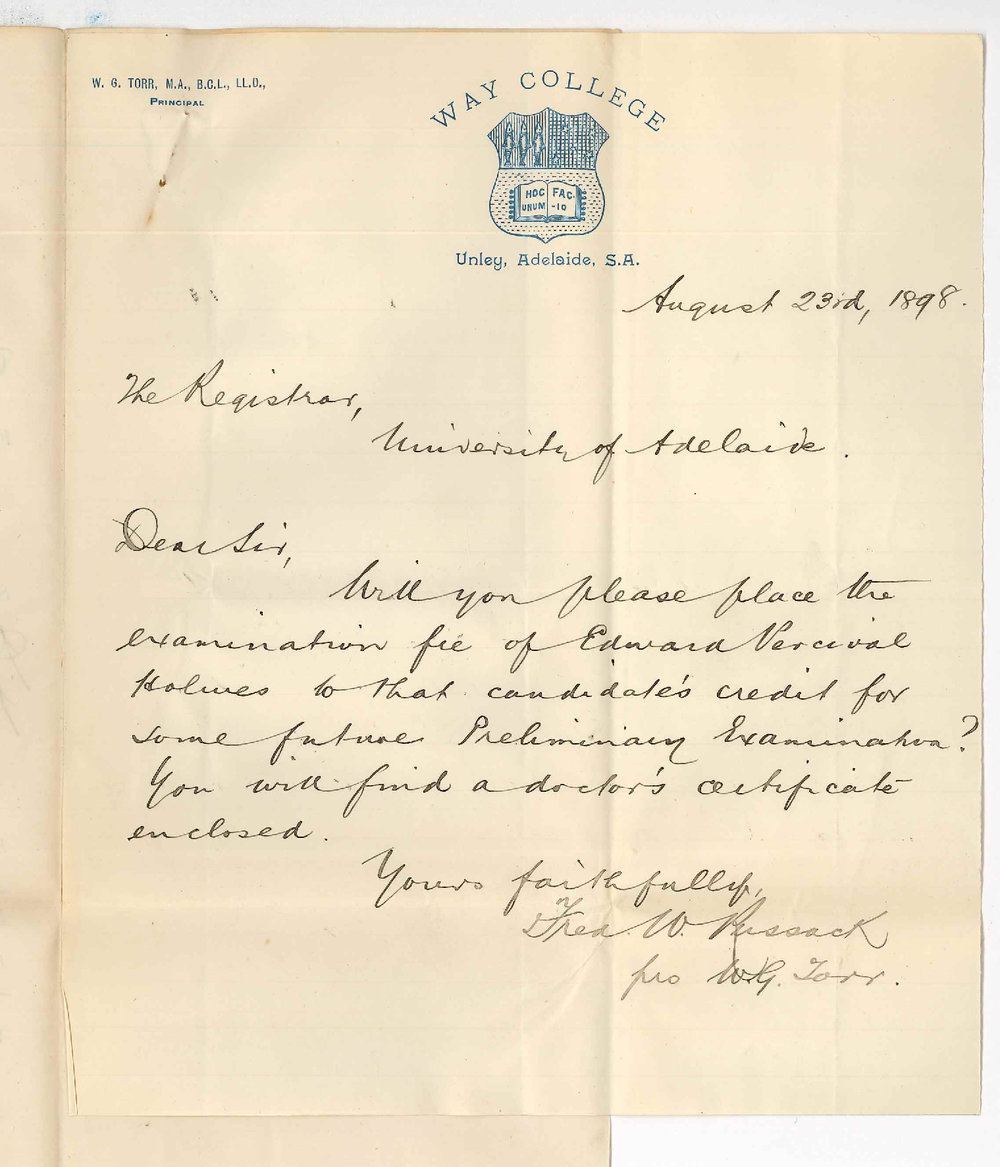 W. G. TORR, M.A., B.C.L., LL.D.,
PRINCIPAL
WAY COLLEGE
HOC FAC.
UNUM -10
Unley, Adelaide, S.A.
August 23rd, 1898.
The Registrar,
University of Adelaide.
Dear Sir,
Will you please place the
examination fee of Edward Percival
Holmes to that candidate's credit for
some future Preliminary Examination?
You will find a doctor's certificate
enclosed.
Yours faithfully,
Fred W. Kussack
pro W.G. Torr.